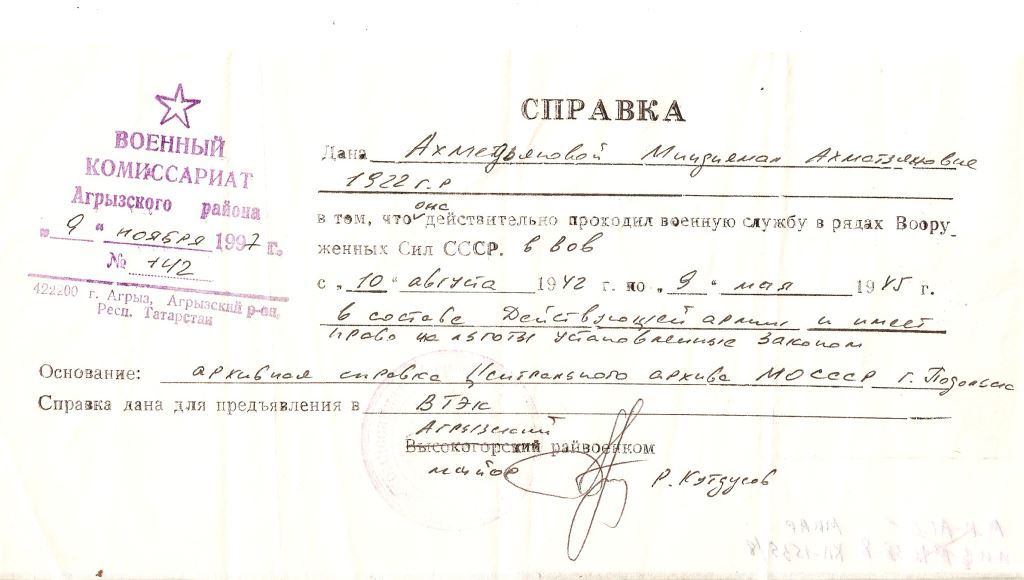 ВОЕННЫЙ
КОМИССАРИАТ
Агрызского района
„ 9 “ ноября 1997 г.
№ 142
422200 г. Агрыз, Агрызский р-он,
Респ. Татарстан
СПРАВКА
Дана Ахметзяновой Ахматзяновне
1922 г.р
она
в том, что действительно проходил военную службу в рядах Воору_
женных Сил СССР. в ВОВ
с „10“ августа 1942 г. по „9“ мая 1945 г.
в составе Действующей армии и имеет
право на льготы установленные Законом
Основание: архивная справка Центрального архива МО СССР г. Подольск
Справка дана для предъявления в ВТЭК
Агрызский
Высокогорский райвоенком
майор Р.